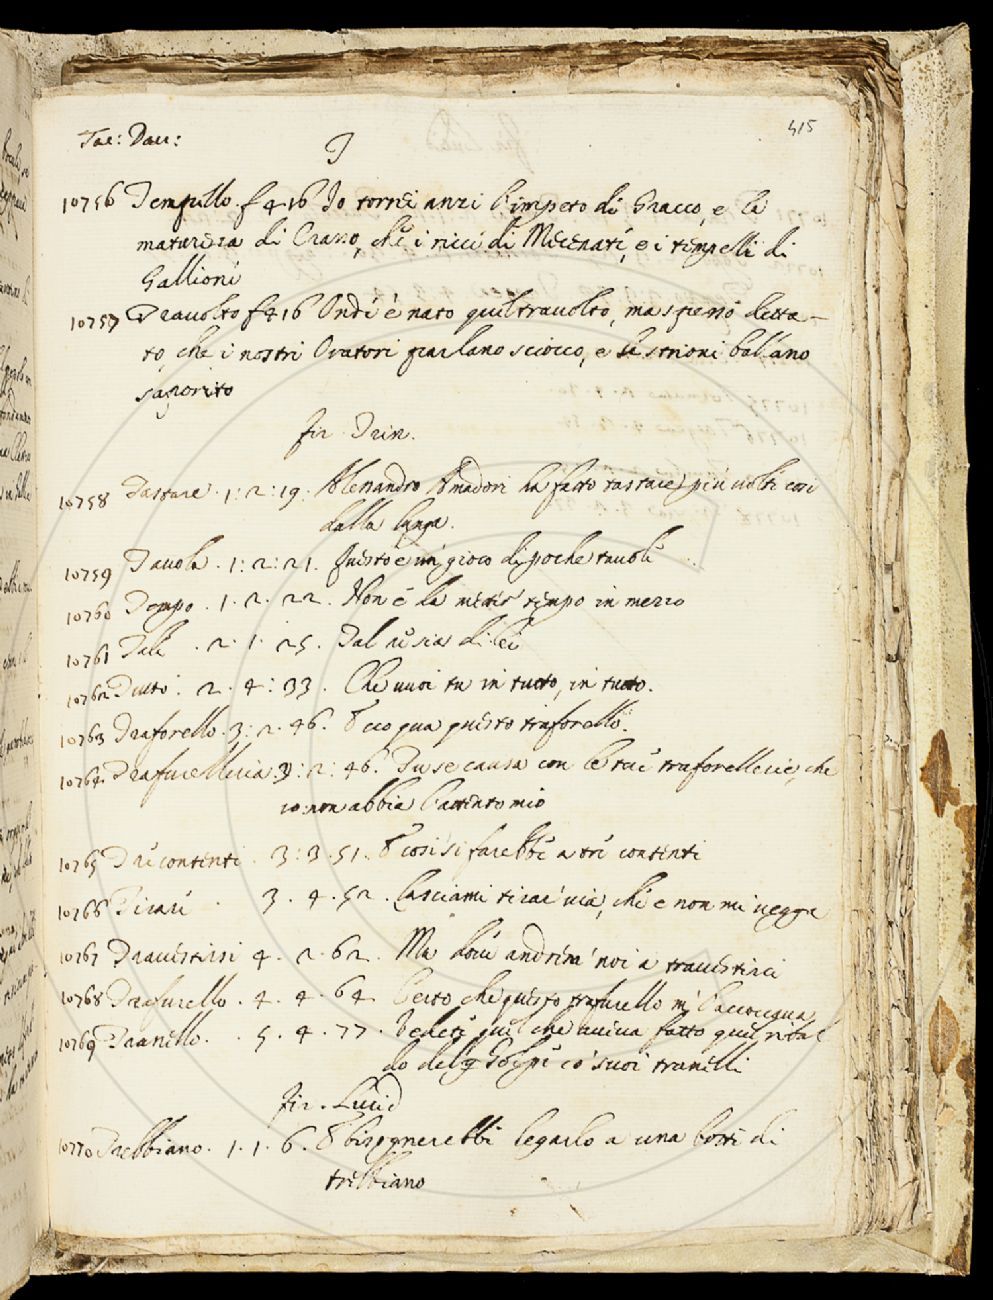 Tac: Dav:
415
T
10756 Tempello. f 416 Io torrei anzi l'impeto di Gracco, e la
maturezza di Crasso, che i ricci di Mecenate, e i tempelli di
Gallione
10757 Travolto f 416 Onde è nato quel travolto, ma spesso detta-
to, che i nostri Oratori parlano sciocco, e li strioni ballano
saporito
Fir. Trin.
10758 Tastare. 1: 2: 19: Alessandro Amadori ha fatto tastare più volte così
dalla larga.
10759 Tavola. 1: 2: 21. Questo è un gioco di poche tavole
10760 Tempo. 1. 2. 22. Non è da metter tempo in mezzo
10761 Tale. 2. 1. 25. Tal ne sia di lei
10762 Tutto. 2. 4: 33. Che vuoi tu in tutto, in tutto.
10763 Traforello. 3: 2. 46. Ecco qua questo traforello.
10764 Trafurelleria 3: 2: 46. Tu se causa con le tue traforellerie, che
io non abbia l'attento mio
10765 Tre contenti. 3: 3. 51. E così si farebbe a tre contenti
10766 Tirare. 3. 4. 52. Lasciami tirar via, che e non mi vegga
10767 Travestirsi 4. 2. 62. Ma dove andremo noi a travestirci
10768 Trafurello. 4. 4. 64 Certo che questo trafurello m' l'accoccava
10769 Tranello. 5. 4. 77. Vedete quel che aveva fatto quel ribal
do del Golpe co' suoi tranelli
Fir. Lucid
10770 Trebbiano. 1. 1. 6. E bisognerebbe legarlo a una botte di
trebbiano